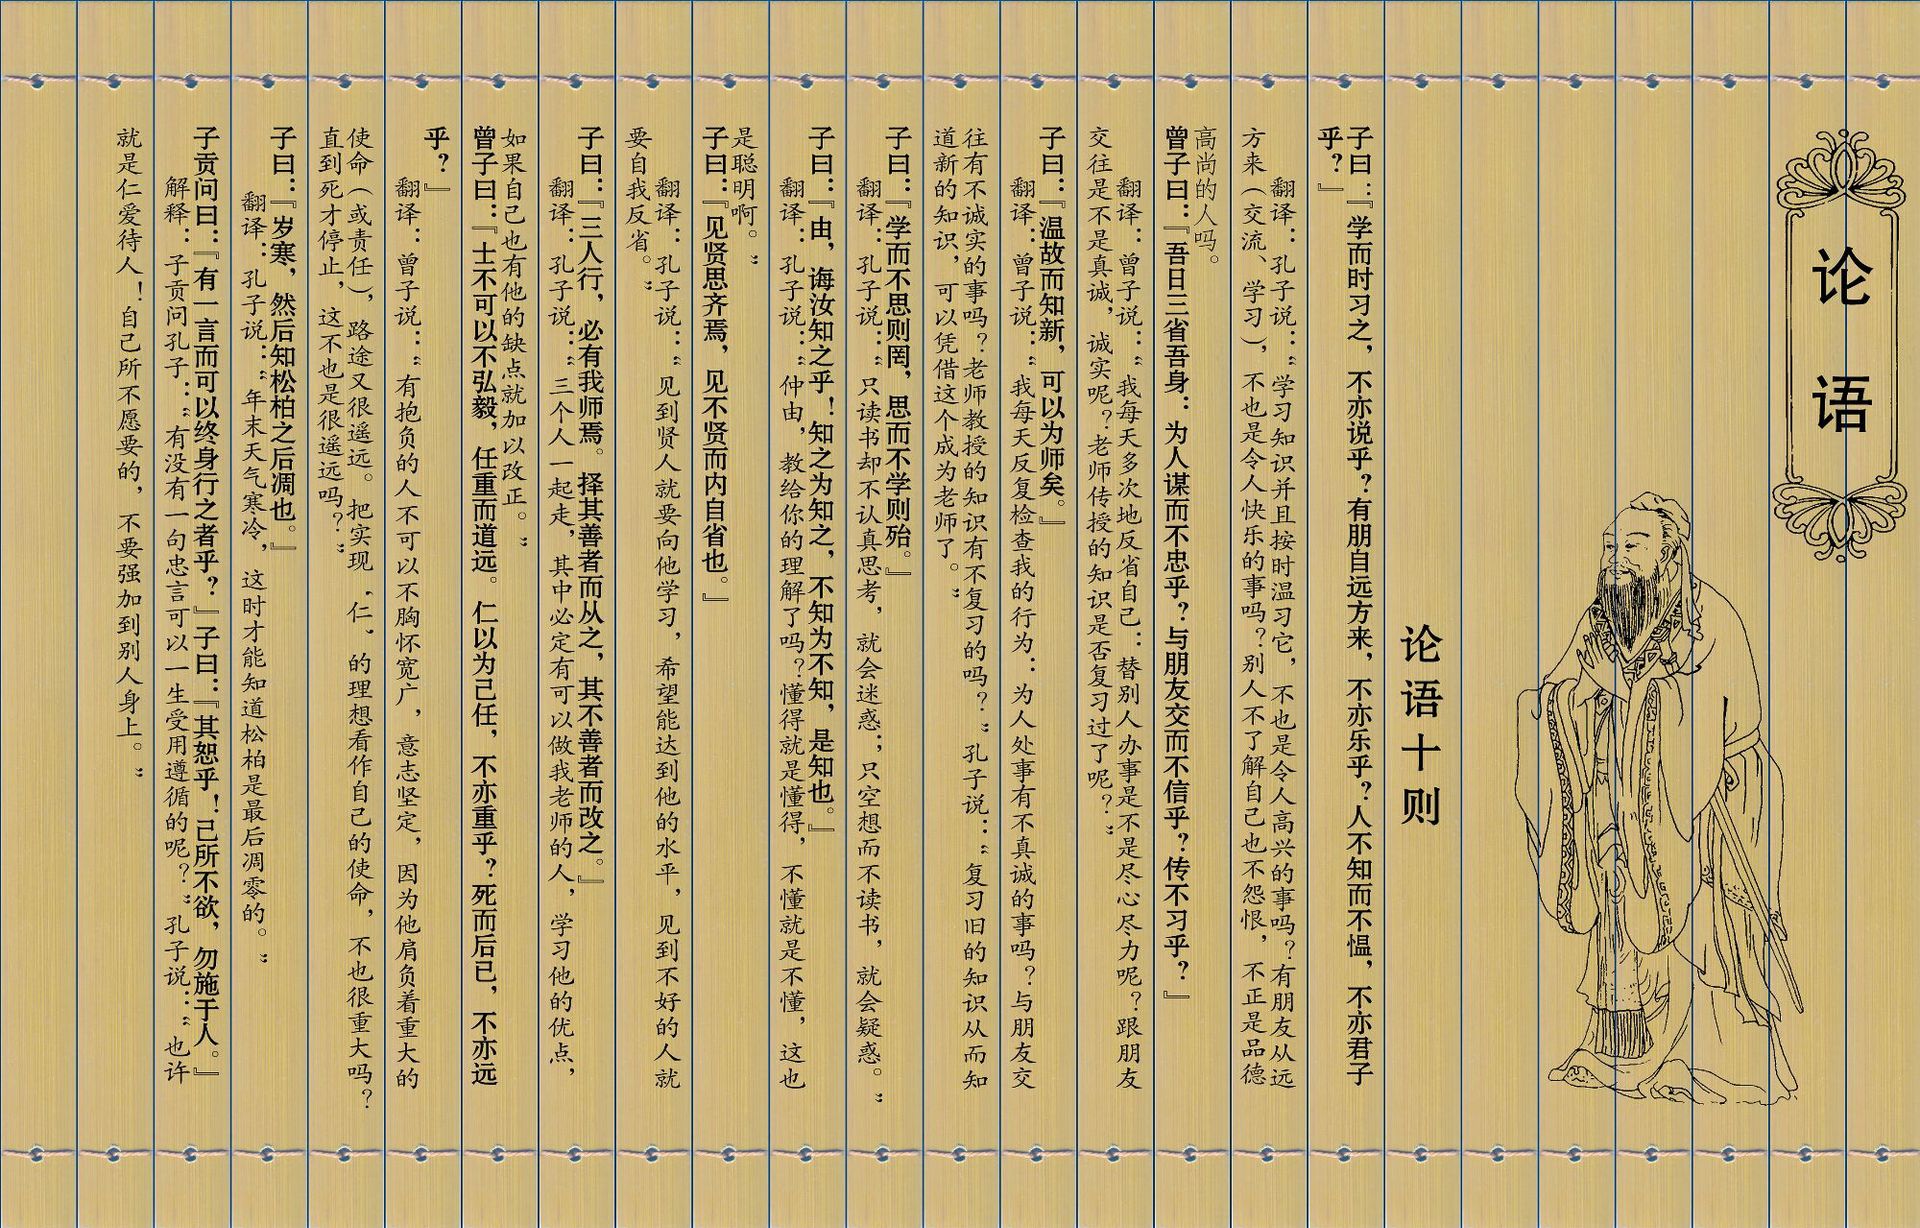 论语
论语十则
子曰：『学而时习之，不亦说乎？有朋自远方来，不亦乐乎？人不知而不愠，不亦君子
乎？』
翻译：孔子说：“学习知识并且按时温习它，不也是令人高兴的事吗？有朋友从远
方来（交流、学习），不也是令人快乐的事吗？别人不了解自己也不怨恨，不正是品德
高尚的人吗。
曾子曰：『吾日三省吾身：为人谋而不忠乎？与朋友交而不信乎？传不习乎？』
翻译：曾子说：“我每天多次地反省自己：替别人办事是不是尽心尽力呢？跟朋友
交往是不是真诚，诚实呢？老师传授的知识是否复习过了呢？”
子曰：『温故而知新，可以为师矣。』
翻译：曾子说：“我每天反复检查我的行为：为人处事有不真诚的事吗？与朋友交
往有不诚实的事吗？老师教授的知识有不复习的吗？”孔子说：“复习旧的知识从而知
道新的知识，可以凭借这个成为老师了。”
子曰：『学而不思则罔，思而不学则殆。』
翻译：孔子说：“只读书却不认真思考，就会迷惑；只空想而不读书，就会疑惑。”
子曰：『由，诲汝知之乎！知之为知之，不知为不知，是知也。』
翻译：孔子说：“仲由，教给你的理解了吗？懂得就是懂得，不懂就是不懂，这也
是聪明啊。”
子曰：『见贤思齐焉，见不贤而内自省也。』
翻译：孔子说：“见到贤人就要向他学习，希望能达到他的水平，见到不好的人就
要自我反省。”
子曰：『三人行，必有我师焉。择其善者而从之，其不善者而改之。』
翻译：孔子说：“三个人一起走，其中必定有可以做我老师的人，学习他的优点，
如果自己也有他的缺点就加以改正。”
曾子曰：『士不可以不弘毅，任重而道远。仁以为己任，不亦重乎？死而后已，不亦远
乎？』
翻译：曾子说：“有抱负的人不可以不胸怀宽广，意志坚定，因为他肩负着重大的
使命（或责任），路途又很遥远。把实现‘仁’的理想看作自己的使命，不也很重大吗？
直到死才停止，这不也是很遥远吗？”
子曰：『岁寒，然后知松柏之后凋也。』
翻译：孔子说：“年末天气寒冷，这时才能知道松柏是最后凋零的。”
子贡问曰：『有一言而可以终身行之者乎？』子曰：『其恕乎！己所不欲，勿施于人。』
解释：子贡问孔子：“有没有一句忠言可以一生受用遵循的呢？”孔子说：“也许
就是仁爱待人！自己所不愿要的，不要强加到别人身上。”